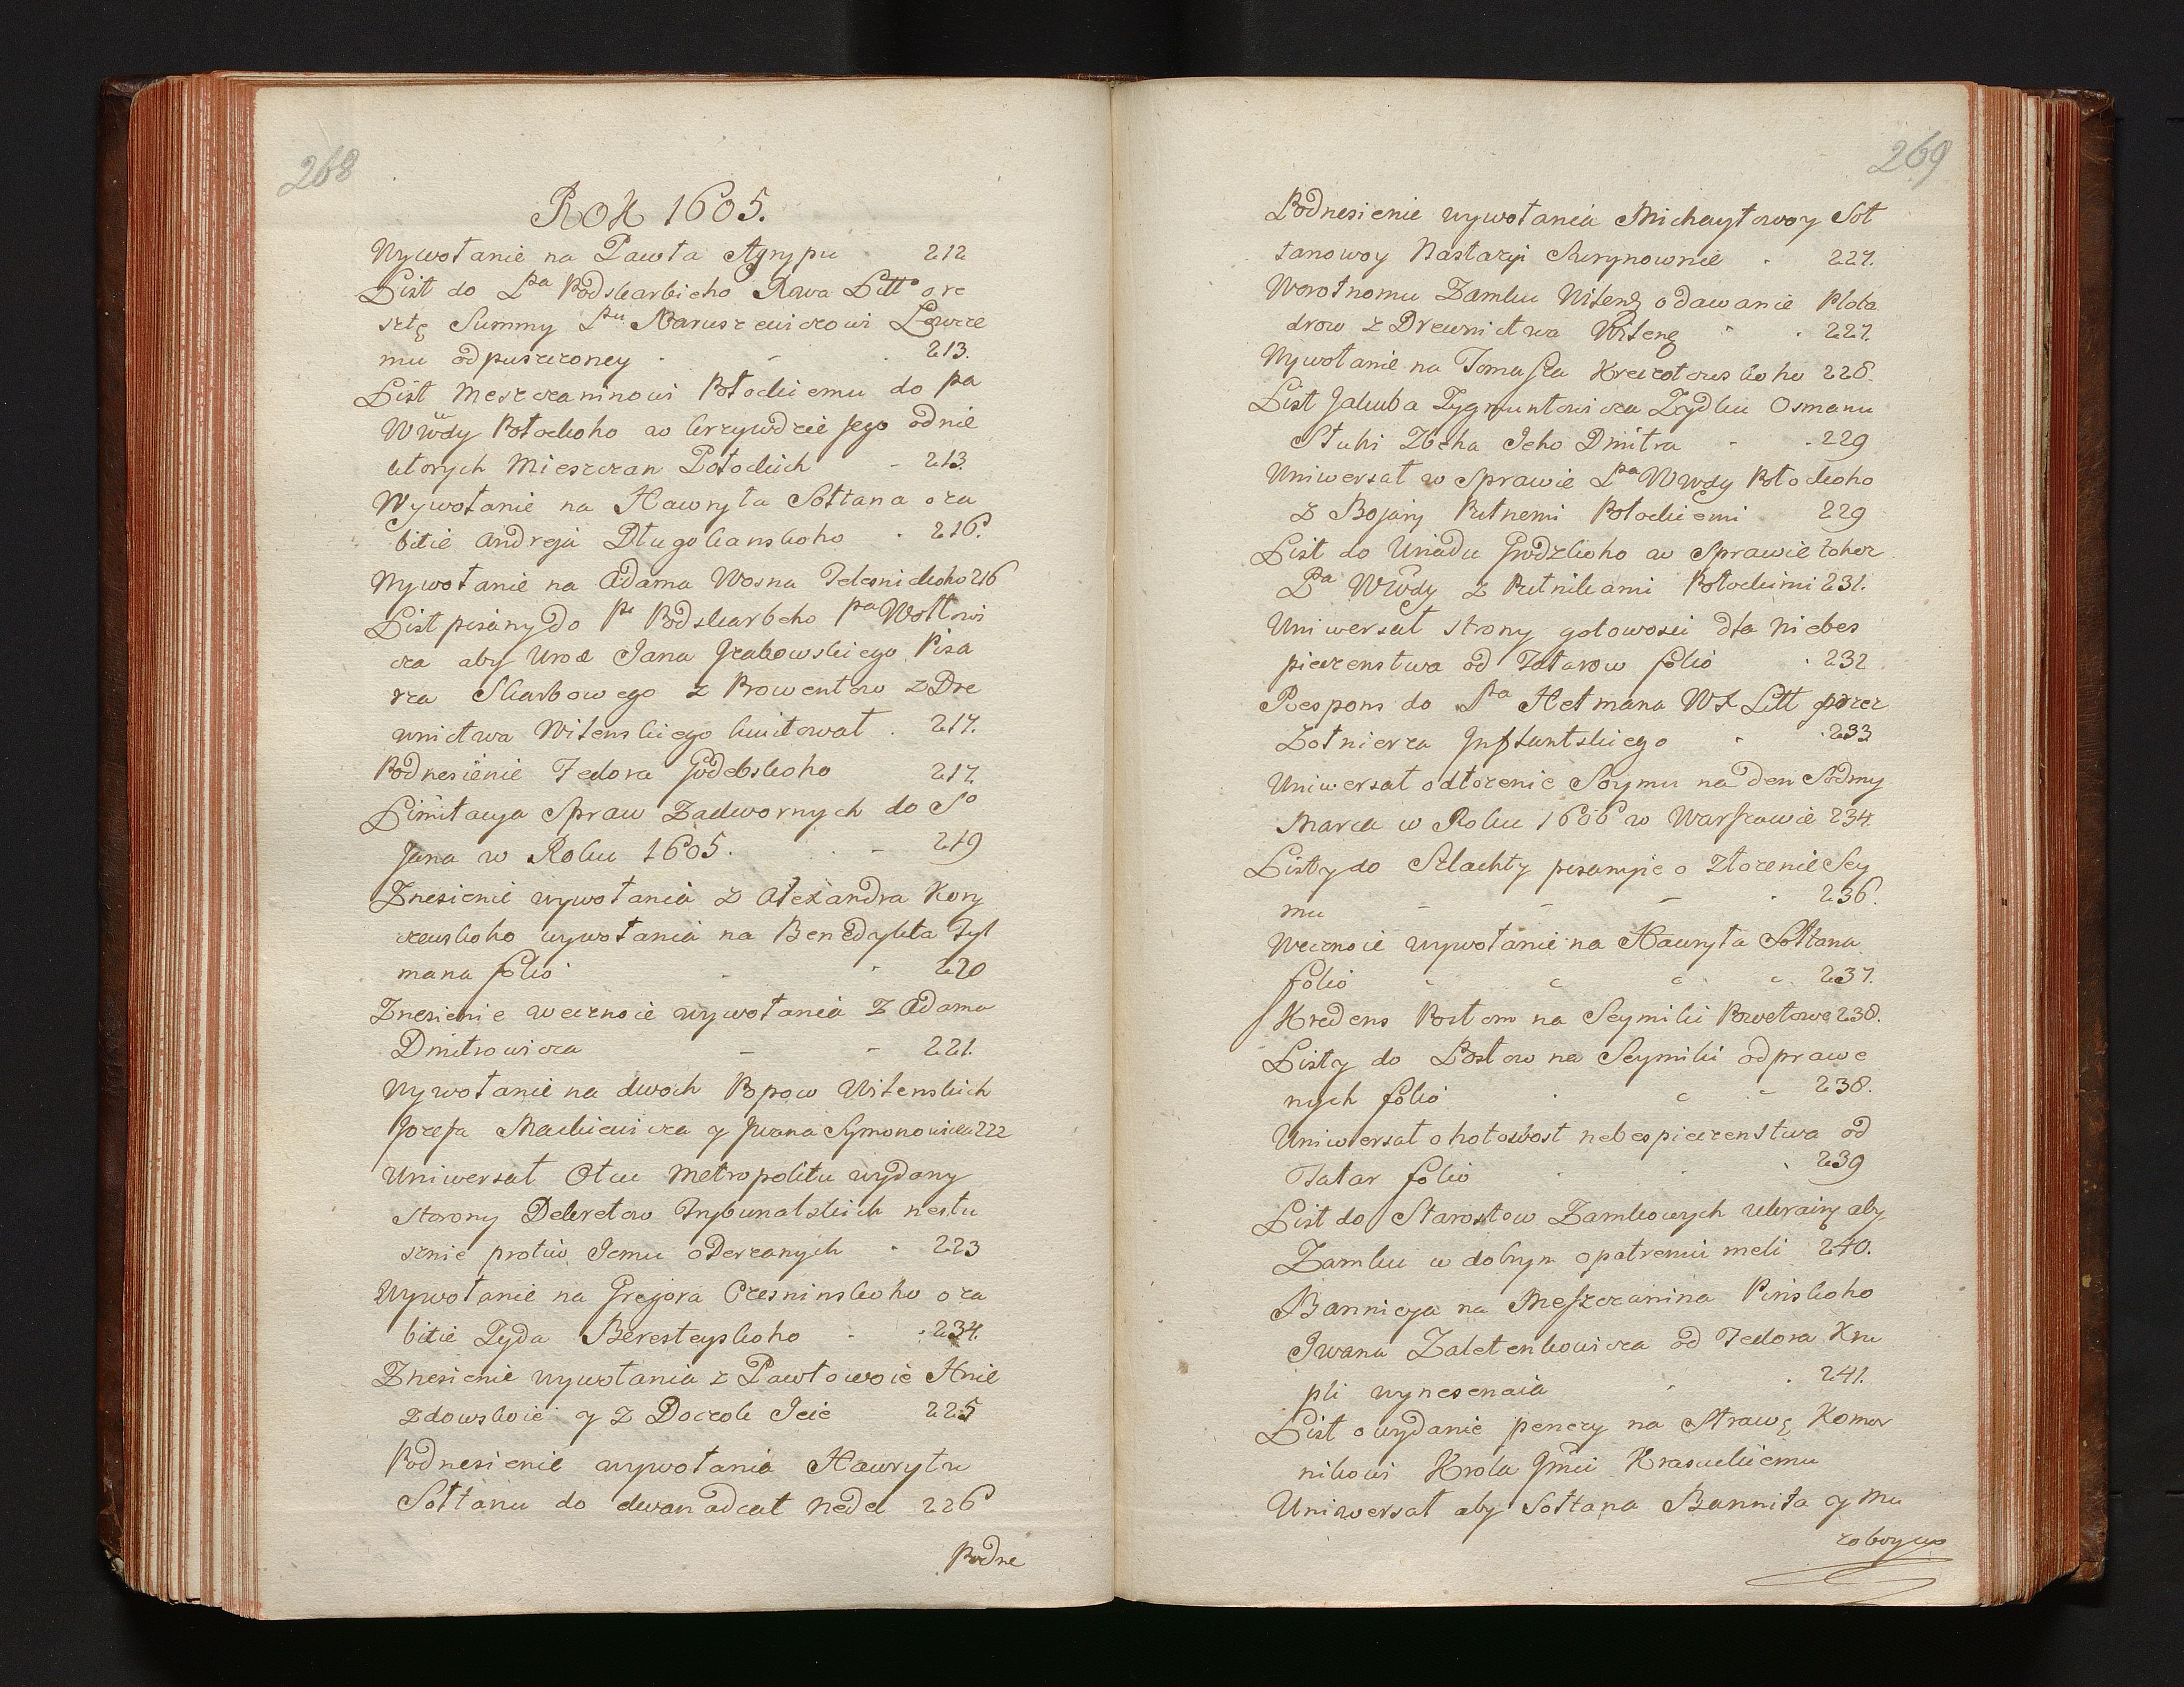 268
ROK 1605.
Wywołanie na Pawła Agrypu 212
List do Pa Podskarbieho Rwa Litto o re
sztę Summy Pu Naruszewiczowi Łowcze
mu odpuszczoney . - . 213.
List Meszczaninowi Połockiemu do pa
Wwdy Połockoho w krzywdzie Jego od nie
których Mieszczan Połockich - 213.
Wywołanie na Hawryła Sołtana o za
bitie Andreja Długokanskoho . 216.
Wywołanie na Adama Wosna Telesnickoho 216
List pisany do Pa Podskarbeho pa Wołłowi
cza aby Urod Jana Grabowskiego Pisa
rza Skarbowego z Prowentow z Dre
wnictwa Witenskiego kwitował . 217.
Podnesienie Fedora Godebskoho 217.
Limitacya Spraw Zadwornych do So
Jana w Roku 1605. . - 219
Znesienie wywołania z Alexandra Kory
czewskoho wywołania na Benedykta Tyl
mana folio - . 220
Znesienie wecznoie wywołania z Adama
Dmitrowicza - - 221.
Wywołanie na dwoch Popow Witenskich
Jozefa Mackiewicza y Jwana Symonowicza 222
Uniwersał Otcu Metropolitu wydany
storony Dekretow Trybunalskich nesłu
sznie protiw Jemu oderzanych . 223
Wywołanie na Gregora Czesninskoho o za
bitie Żyda Beresteyskoho . . 234.
Znesienie wywołania z Pawłowoie Hnie
zdowskoie y z Doczok Jeie 225
Podnesienie wywołania Hawryłu
Sołtanu do dwanadcat nedel 226
Podne
269
Podnesienie wywołania Michayłowoy Soł
tanowoy Nastazyi Skrynownie . 227.
Worotnomu Zamku Witeng odawanie Ploba
drow z Drewnictwa Witeng . . 227.
Wywołanie na Tomasza Kreczotowskoho 228.
List Jakuba Zygmuntowicza Żydku Osmanu
Stuki Zbeha Jeho Dmitra - . 229
Uniwersał w Sprawie Pa Wwdy Połockoho
z Bojary Putnemi Połockiemi 229
List do Uriadu Grodzkoho w Sprawie tohoz
Pa Wwdy z Putnikami Połockimi 231.
Uniwersał strony gotowości dla niebes
pieczenstwa od Tatarow folio . 232
Respons do Pa Hetmana WX Litt przez
Żołnierza Inflantskiego . . 233
Uniwersał odłozenie Soymu na den Sodmy
Marca w Roku 1606 w Warszawie 234.
Listy do Szlachty pisanyie o złozenie Sey
mu - - - . 236.
Wecznoie wywołanie na Hawryła Sołtana
folio 237.
Kredens Posłom na Seymiki Powetowe 238.
Listy do Posłow na Seymiki odprawe
nych folio . - 238.
Uniwersał o hotowost nebespieczenstwa od
Tatar folio . . . 239
List do Starostow Zamkowych ukrainy aby
Zamku w dobrym opatreniu meli 240.
Bannicya na Meszczanina Pinskoho
Iwana Zaletenkowicza od Fedora Kru
pli wynesenaia . . 241.
List o wydanie penezy na Strawę Komor
nikowi Krola Jmci Krasuckiemu
Uniwersał aby Sołtana Bannita y Mu
zoboycu